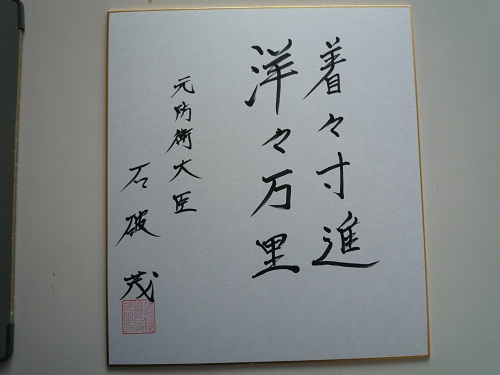 着々寸進
洋々万里
元防衛大臣
石破茂